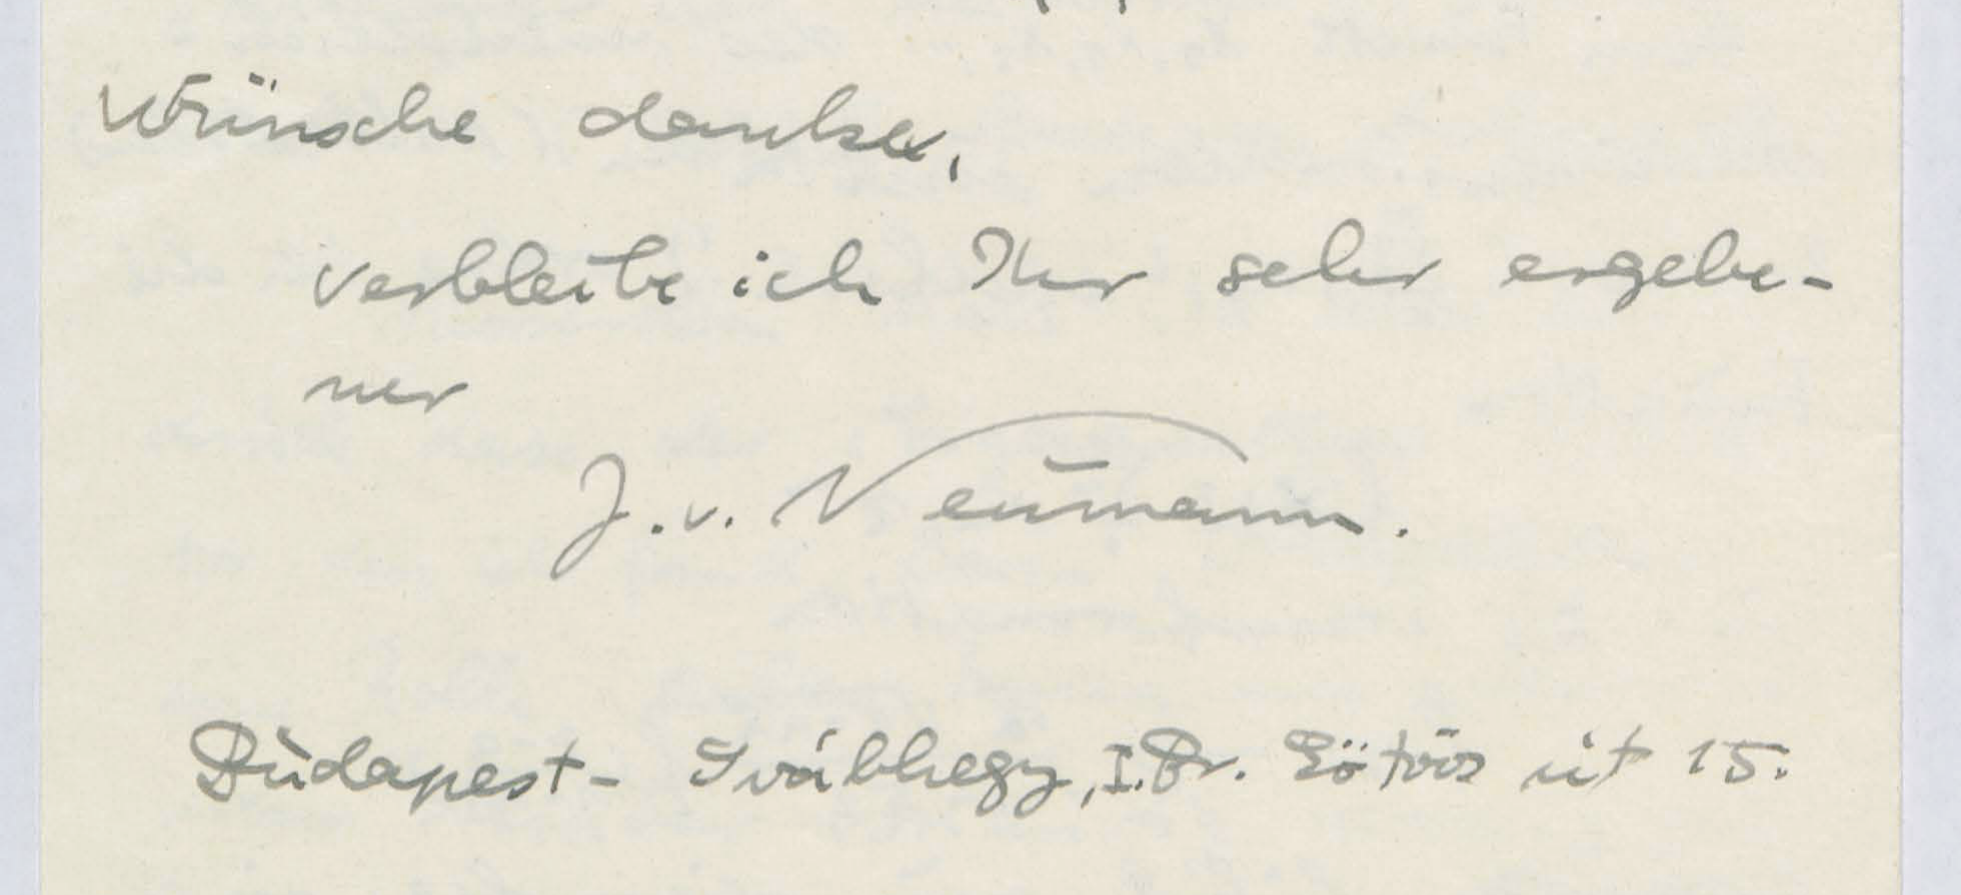 Wünsche danke,
verbleibe ich Ihr sehr ergebe-
ner
J. v. Neumann.
Budapest- Svábhegy, I. Br. Eötvös út 15.